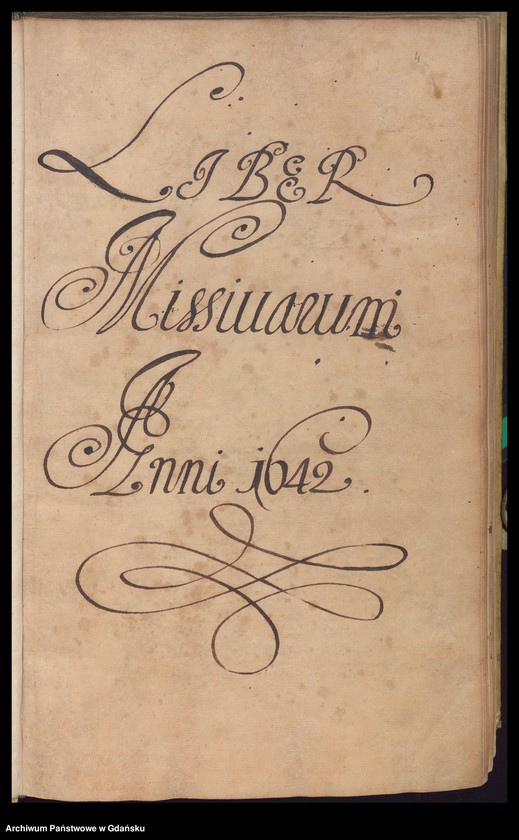 LIBER
Missiuarum
Anni 1642.
Archiwum Państwowe w Gdańsku